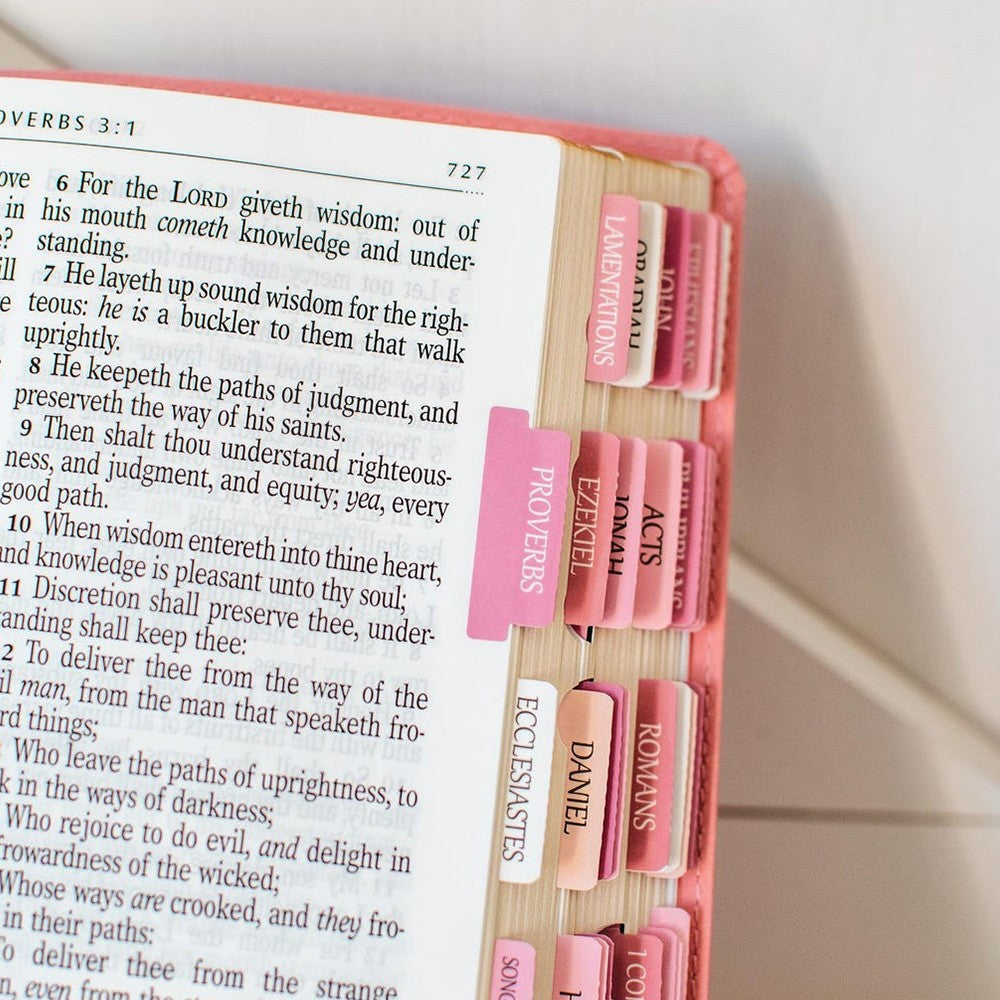 OVERBS 3:1
727
6 For the LORD giveth wisdom: out of
his mouth cometh knowledge and under-
standing.
7 He layeth up sound wisdom for the righ-
teous: he is a buckler to them that walk
uprightly.
8 He keepeth the paths of judgment, and
preserveth the way of his saints.
9 Then shalt thou understand righteous-
ness, and judgment, and equity; yea, every
good path.
10 When wisdom entereth into thine heart,
and knowledge is pleasant unto thy soul;
11 Discretion shall preserve thee, under-
tanding shall keep thee:
2 To deliver thee from the way of the
il man, from the man that speaketh fro-
rd things;
Who leave the paths of uprightness, to
k in the ways of darkness;
Who rejoice to do evil, and delight in
frowardness of the wicked;
Whose ways are crooked, and they fro-
in their paths:
To deliver thee from the strange
n, even from the
ove
in
e?
ill
LAMENTATIONS
OBADIAH
JOHN
EPHESIANS
PROVERBS
EZEKIEL
JONAH
ACTS
PHILIPPIANS
ECCLESIASTES
DANIEL
ROMANS
SONG
1 CO